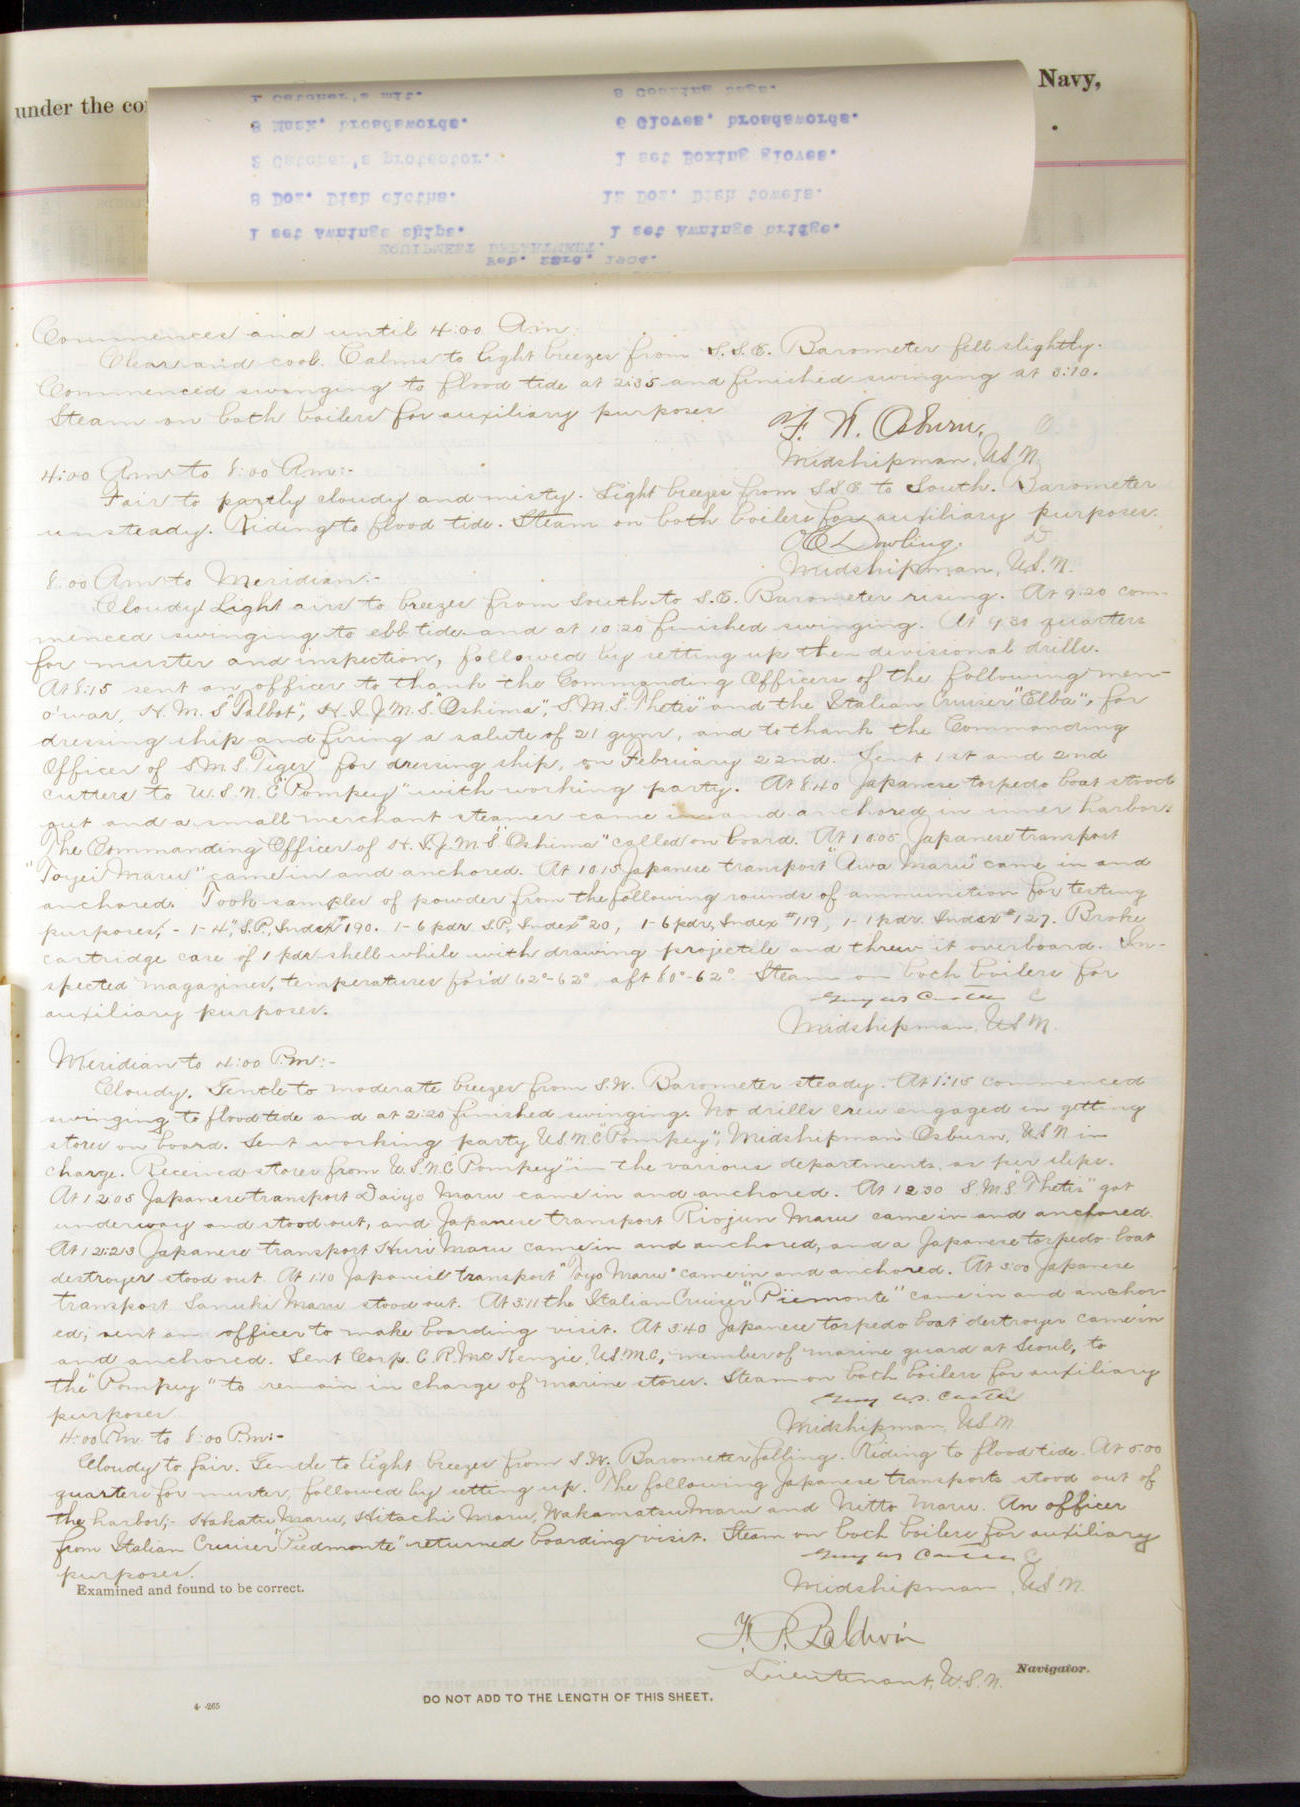 under the co
Navy,
1 Catcher's mit.
8 Coaling bags.
8 Mask, broadswords.
6 Gloves, broadswords.
2 Catcher's protector.
1 set Boxing gloves.
8 Doz. Dish cloths.
12 Doz. Dish towels.
1 set Awnings ships.
1 set Awnings bridge.
EQUIPMENT DEPARTMENT.
Feb. 23rd, 1904.
Commences and until 4:00 A.m.
Clear and cool. Calms to light breezes from S.S.E. Barometer fell slightly.
Commenced swinging to flood tide at 2:35 and finished swinging at 3:10.
Steam on both boilers for auxiliary purposes
F. W. Osburn,
Midshipman, U.S.N.
4:00 A.m to 8:00 A.m:-
Fair to partly cloudy and misty. Light breezes from SSE to South. Barometer
unsteady. Riding to flood tide. Steam on both boilers for auxiliary purposes.
O Dowling.
Midshipman, U.S.N.
8:00 A.m to Meridian:-
Cloudy Light airs to breezes from South to S.E. Barometer rising. At 9:20 com-
menced swinging to ebb tide and at 10:20 finished swinging. At 9:30 quarters
for muster and inspection, followed by setting up then divisional drills.
At 8:15 sent an officer to thank the Commanding Officers of the following men-
o'war, H.M.S "Talbot", H.I.J.M.S. "Oshima", S.M.S. "Thetis" and the Italian Cruiser "Elba", for
dressing ship and firing a salute of 21 guns, and to thank the Commanding
Officer of S.M.S. "Tiger" for dressing ship, on February 22nd. Sent 1st and 2nd
cutters to U.S.N.C "Pompey" with working party. At 8:40 Japanese torpedo boat stood
out and a small merchant steamer came in and anchored in inner harbor.
The Commanding Officer of H.I.J.M.S "Oshima" called on board. At 10:05 Japanese transport
"Toyei Maru" came in and anchored. At 10:15 Japanese transport "Awa Maru" came in and
anchored. Took samples of powder from the following rounds of ammunition for testing
purposes;- 1-4", S.P., Index #190. 1-6 pdr S.P, Index #20, 1-6 pdr, Index #119, 1-1 pdr. Index #127. Broke
cartridge case of 1 pdr shell while with drawing projectile and threw it overboard. In-
spected magazines, temperatures for'd 62°-62°, aft 80°-62°. Steam on both boilers for
auxiliary purposes.
Midshipman, U.S.N.
Meridian to 4:00 P.m:-
Cloudy. Gentle to moderate breezes from S.W. Barometer steady. At 1:15 commenced
swinging to flood tide and at 2:20 finished swinging. No drills crew engaged in getting
stores on board. Sent working party U.S.N.C "Pompey", Midshipman Osburn, U.S.N in
charge. Received stores from U.S.N.C "Pompey" in the various departments, as per slips.
At 12:05 Japanese transport Daiyo Maru came in and anchored. At 12:30 S.M.S. "Thetis" got
underway and stood out, and Japanese transport Riojun Maru came in and anchored.
At 12:23 Japanese transport Maru came in and anchored, and a Japanese torpedo-boat
destroyer stood out. At 1:10 Japanese transport "Toyo Maru" came in and anchored. At 3:00 Japanese
transport Sanuki Maru stood out. At 3:11 the Italian Cruiser "Piemonte" came in and anchor-
ed; sent an officer to make boarding visit. At 3:40 Japanese torpedo boat destroyer came in
and anchored. Sent Corp. C.R. McKenzie, U.S.M.C., member of marine guard at Seoul, to
the "Pompey" to remain in charge of marine stores. Steam on both boilers for auxiliary
purposes.
Midshipman, U.S.N.
4:00 P.m. to 8:00 P.m:-
Cloudy to fair. Gentle to light breezes from S.W. Barometer falling. Riding to flood tide. At 5:00
quarters for muster, followed by setting up. The following Japanese transports stood out of
the harbor;- Hakata Maru, Hitachi Maru, Wakamatsu Maru and Nitto Maru. An officer
from Italian Cruiser "Piedmonte" returned boarding visit. Steam on both boilers for auxiliary
purposes.
Midshipman, U.S.N.
Examined and found to be correct.
F. P. Baldwin
Lieutenant, U.S.N.
Navigator.
DO NOT ADD TO THE LENGTH OF THIS SHEET.